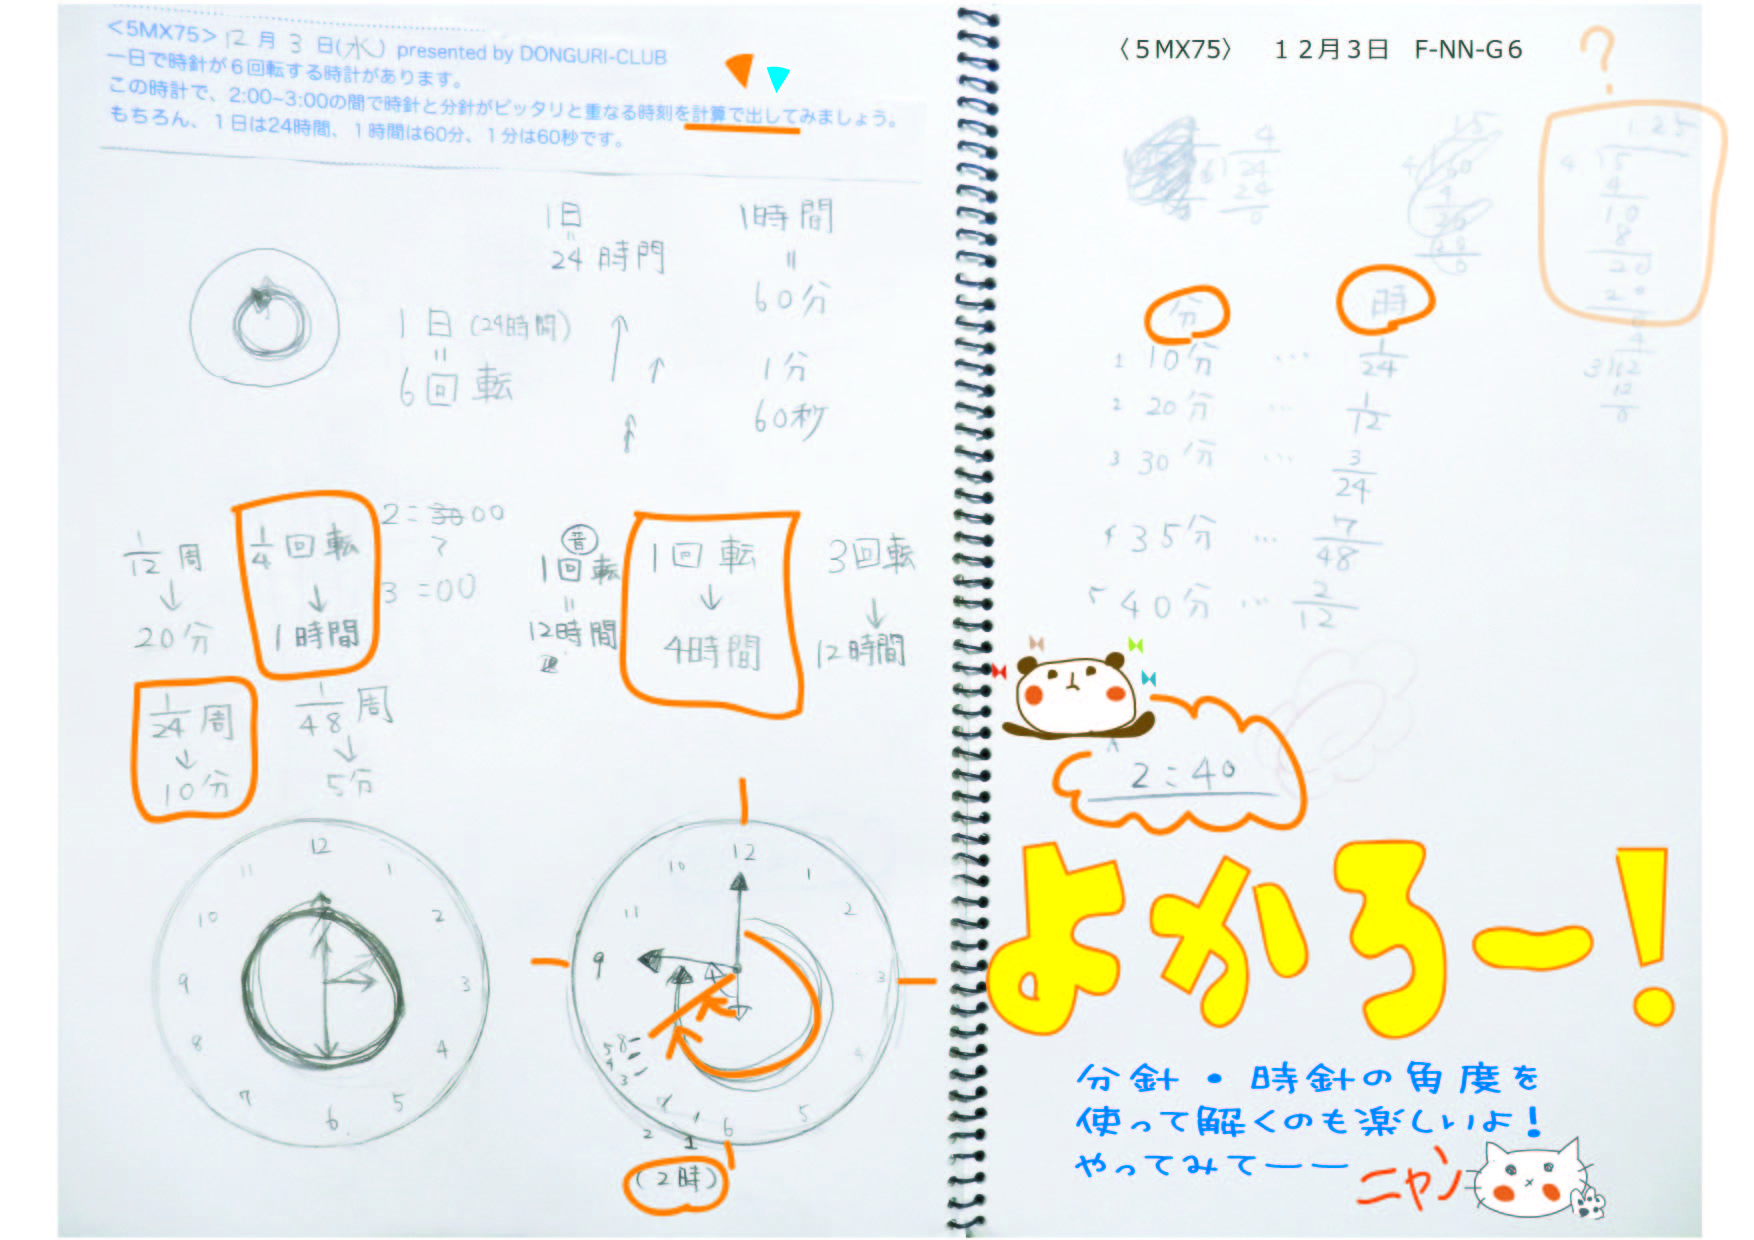 <5MX75> 12月 3日(水) presented by DONGURI-CLUB
一日で時針が6回転する時計があります。
この時計で、2:00~3:00の間で時針と分針がピッタリと重なる時刻を計算で出してみましょう。
もちろん、1日は24時間、1時間は60分、1分は60秒です。
1日
=
24時間
1時間
=
60分
1日(24時間)
=
6回転
1分
60秒
1/12周
↓
20分
1/4回転
↓
1時間
2:00
3:00
昔
1回転
=
12時間
1回転
↓
4時間
3回転
↓
12時間
1/24周
↓
10分
1/48周
↓
5分
12
1
2
3
4
5
6
7
8
9
10
11
12
1
2
3
4
5
6
7
9
11
10
(2時)
〈5MX75〉 12月3日 F-NN-G6
?
4
6)24
24
0
15
4)60
4
20
20
0
1.25
4)5
4
10
8
20
20
0
4
3)12
12
0
分 時
1 10分 … 1/24
2 20分 … 1/12
3 30分 … 3/24
4 35分 … 7/48
5 40分 … 2/12
A
2:40
よかろー!
分針・時針の角度を
使って解くのも楽しいよ!
やってみてーー
ニャン